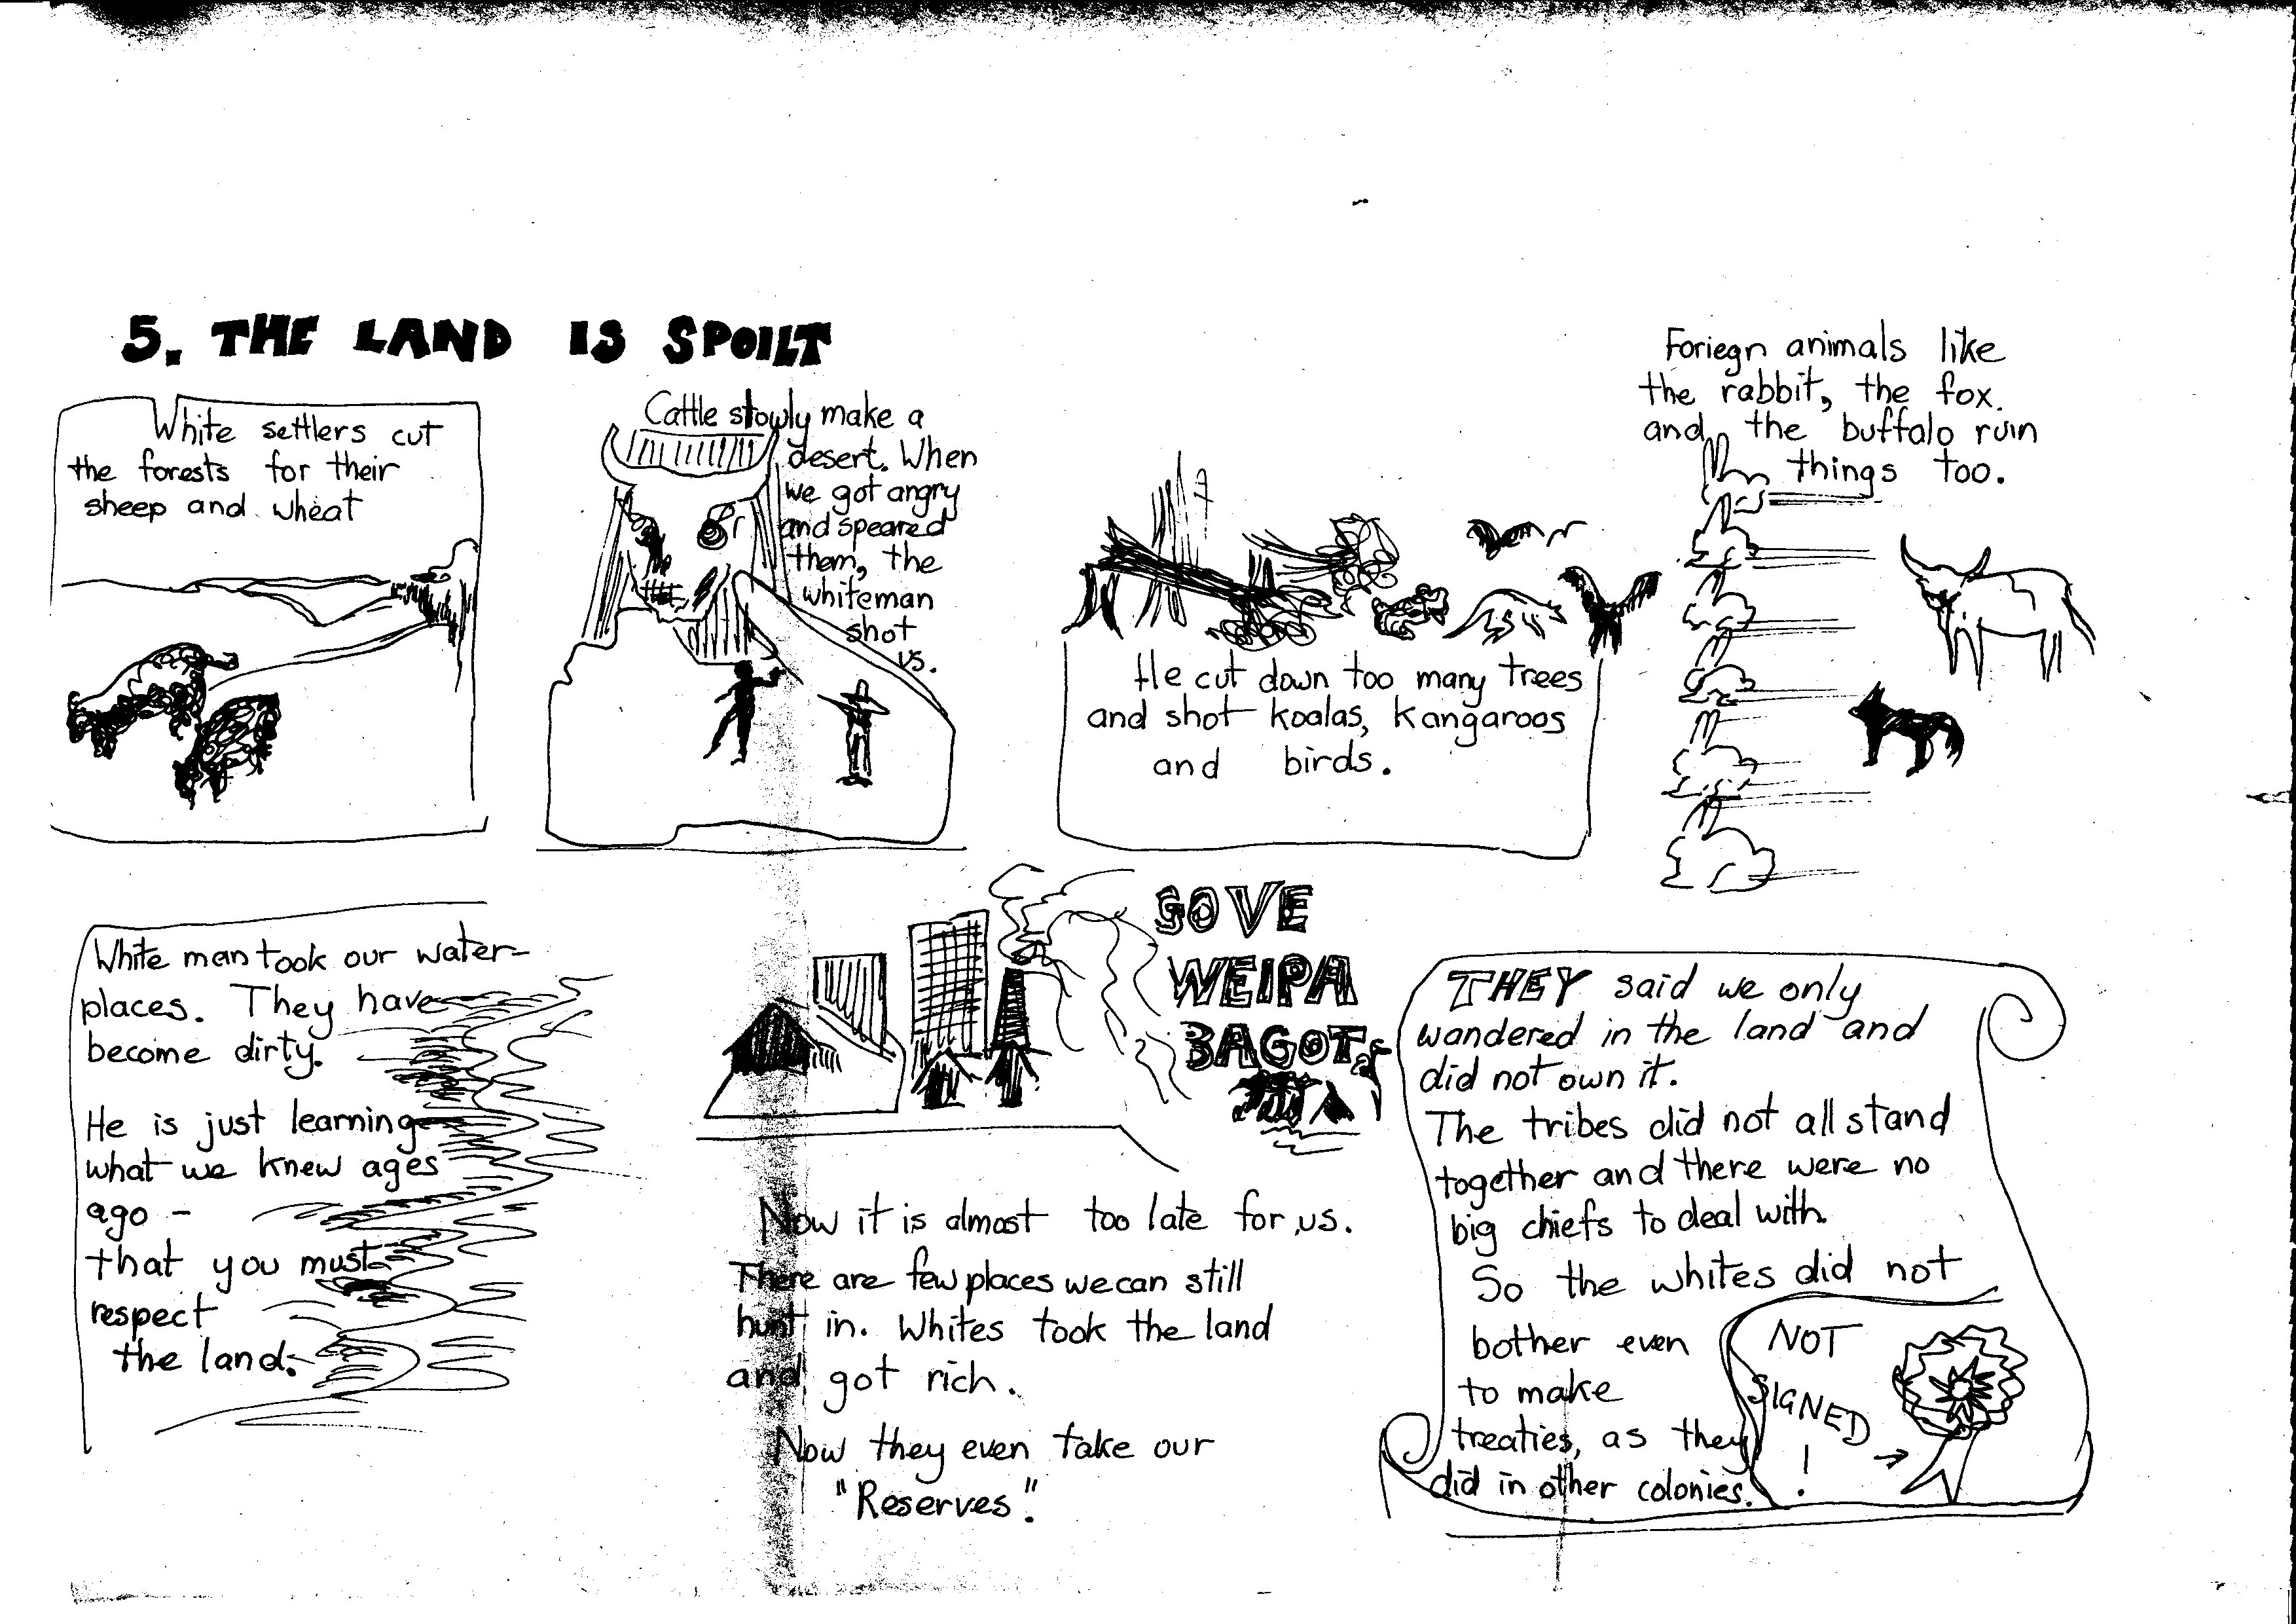 5. THE LAND IS SPOILT
White settlers cut
the forests for their
sheep and wheat
Cattle slowly make a
desert. When
we got angry
and speared
them, the
whiteman
shot
us.
He cut down too many trees
and shot koalas, kangaroos
and birds.
Foriegn animals like
the rabbit, the fox.
and the buffalo ruin
things too.
White man took our water-
places. They have
become dirty.
He is just learning
what we knew ages
ago -
that you must
respect
the land.
GOVE
WEIPA
BAGOT
Now it is almost too late for us.
There are few places we can still
hunt in. Whites took the land
and got rich.
Now they even take our
"Reserves".
THEY said we only
wandered in the land and
did not own it.
The tribes did not all stand
together and there were no
big chiefs to deal with.
So the whites did not
bother even
to make
treaties, as they
did in other colonies.
NOT
SIGNED
!